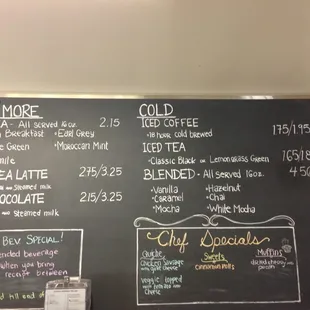 MORE
A - All served 16oz. 2.15
Breakfast • Earl Grey
e Green • Moroccan Mint
mile
EA LATTE 2.75/3.25
Steamed milk
OCOLATE 2.15/3.25
Steamed milk
BEV. SPECIAL!
ended beverage
when you bring
receipt between
COLD
ICED COFFEE 1.75/1.95
• 18 hour cold brewed
ICED TEA 1.65/1.8
• Classic Black or Lemongrass Green
BLENDED - All served 16oz. 4.50
• Vanilla • Hazelnut
• Caramel • Chai
• Mocha • White Mocha
Chef Specials
Quiche
Chicken Sausage
with goat cheese
veggie topped
Cheese
Sweets
Cinnamon Rolls
Muffins